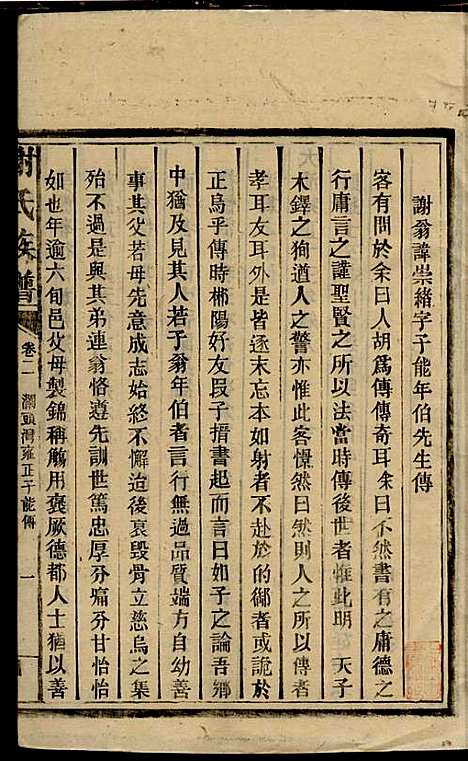 謝翁諱崇緒字子能年伯先生傳
客有問於余曰人胡為傳傳奇耳余曰不然書有之庸德之
行庸言之謹聖賢之所以法當時傳後世者惟此明 天子
木鐸之狥道人之警亦惟此客憬然曰然則人之所以傳者
孝耳友耳外是皆逐末忘本如射者不赴於的御者或詭於
正烏乎傳時郴陽好友叚子搢書起而言曰如子之論吾鄉
中猶及見其人若予翁年伯者言行無過品質端方自幼善
事其父若母先意成志始終不懈迨後哀毀骨立慈烏之集
殆不過是與其弟連翁恪遵先訓世篤忠厚分痛分甘怡怡
如也年逾六旬邑父母製錦稱觴用褒厥德都人士猶以善
謝氏族譜
卷二
灣頭灣雍正子能傳
一